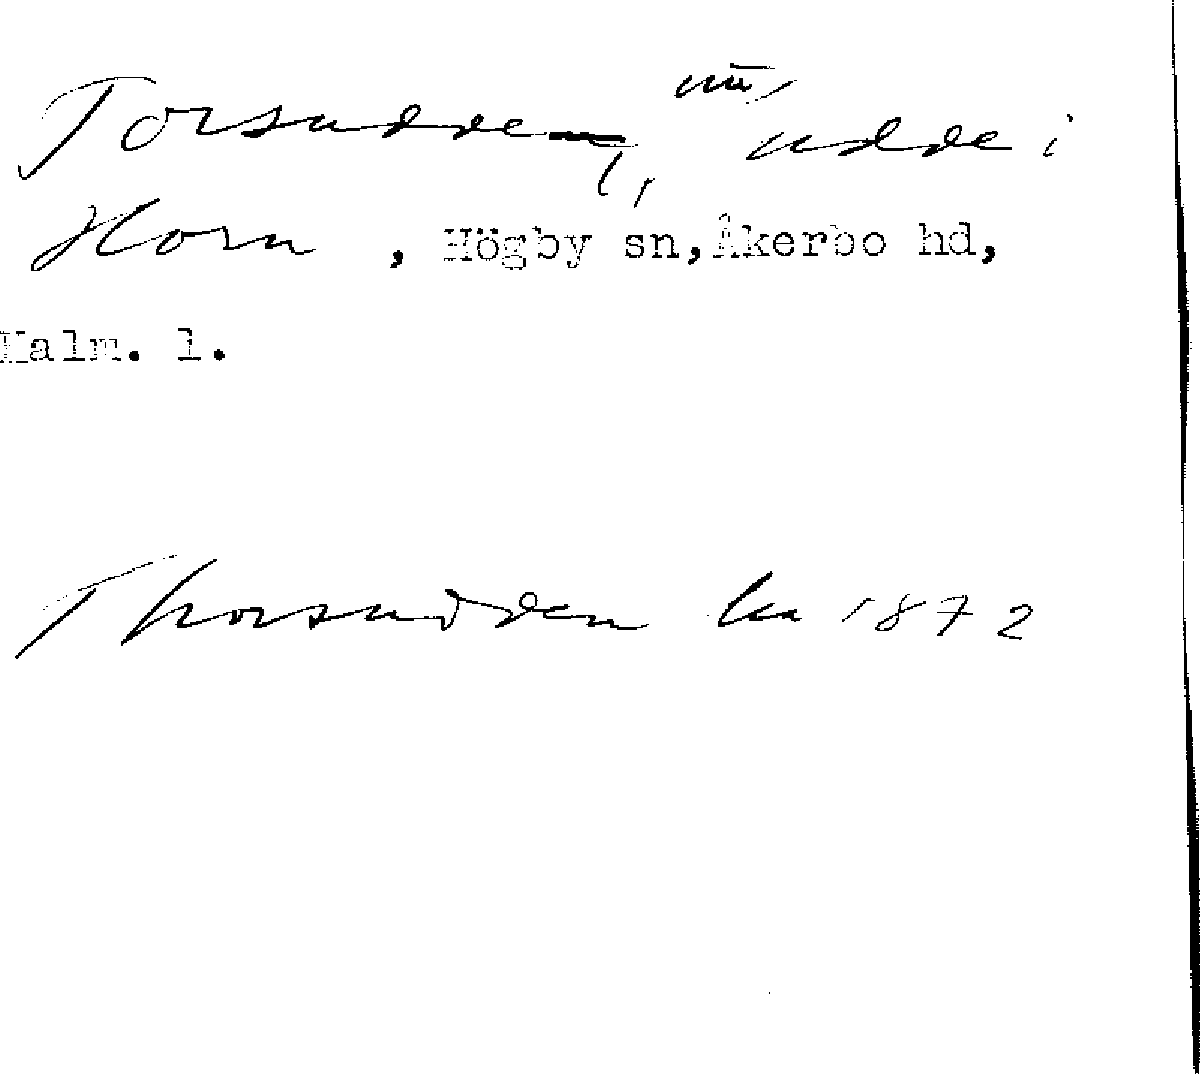 Torsudden, udde i
Horn , Högby sn,Åkerbo hd,
Kalm. l.
Thorsudden lm 1872